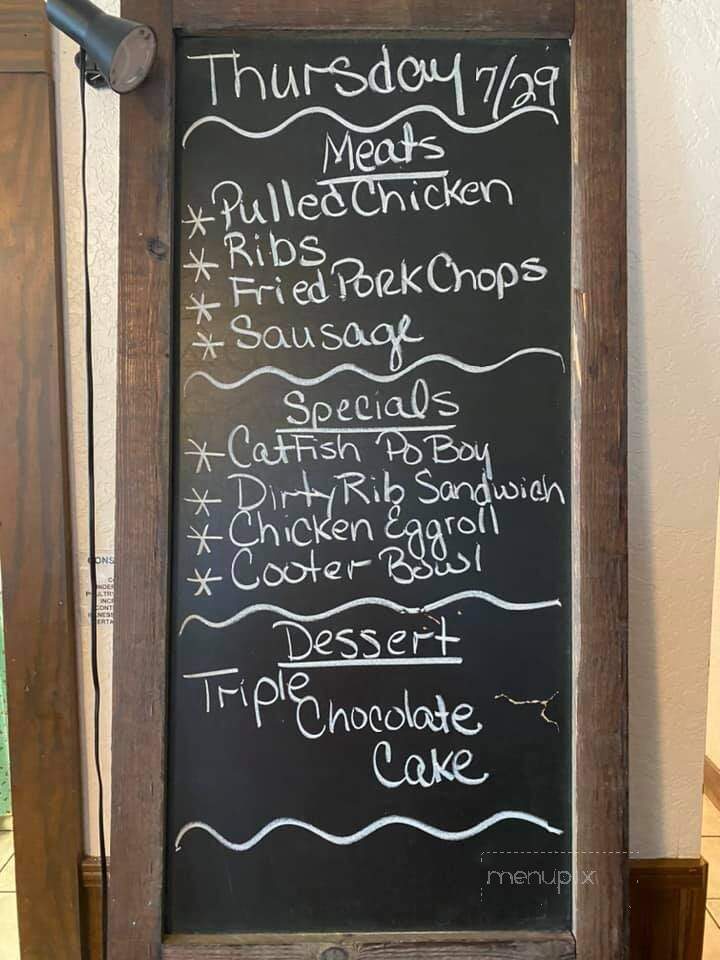 Thursday 7/29
Meats
* Pulled Chicken
* Ribs
* Fried Pork Chops
* Sausage
Specials
* Catfish Po Boy
* Dirty Rib Sandwich
* Chicken Eggroll
* Cooter Bowl
Dessert
Triple
Chocolate
Cake
CONS
menupix